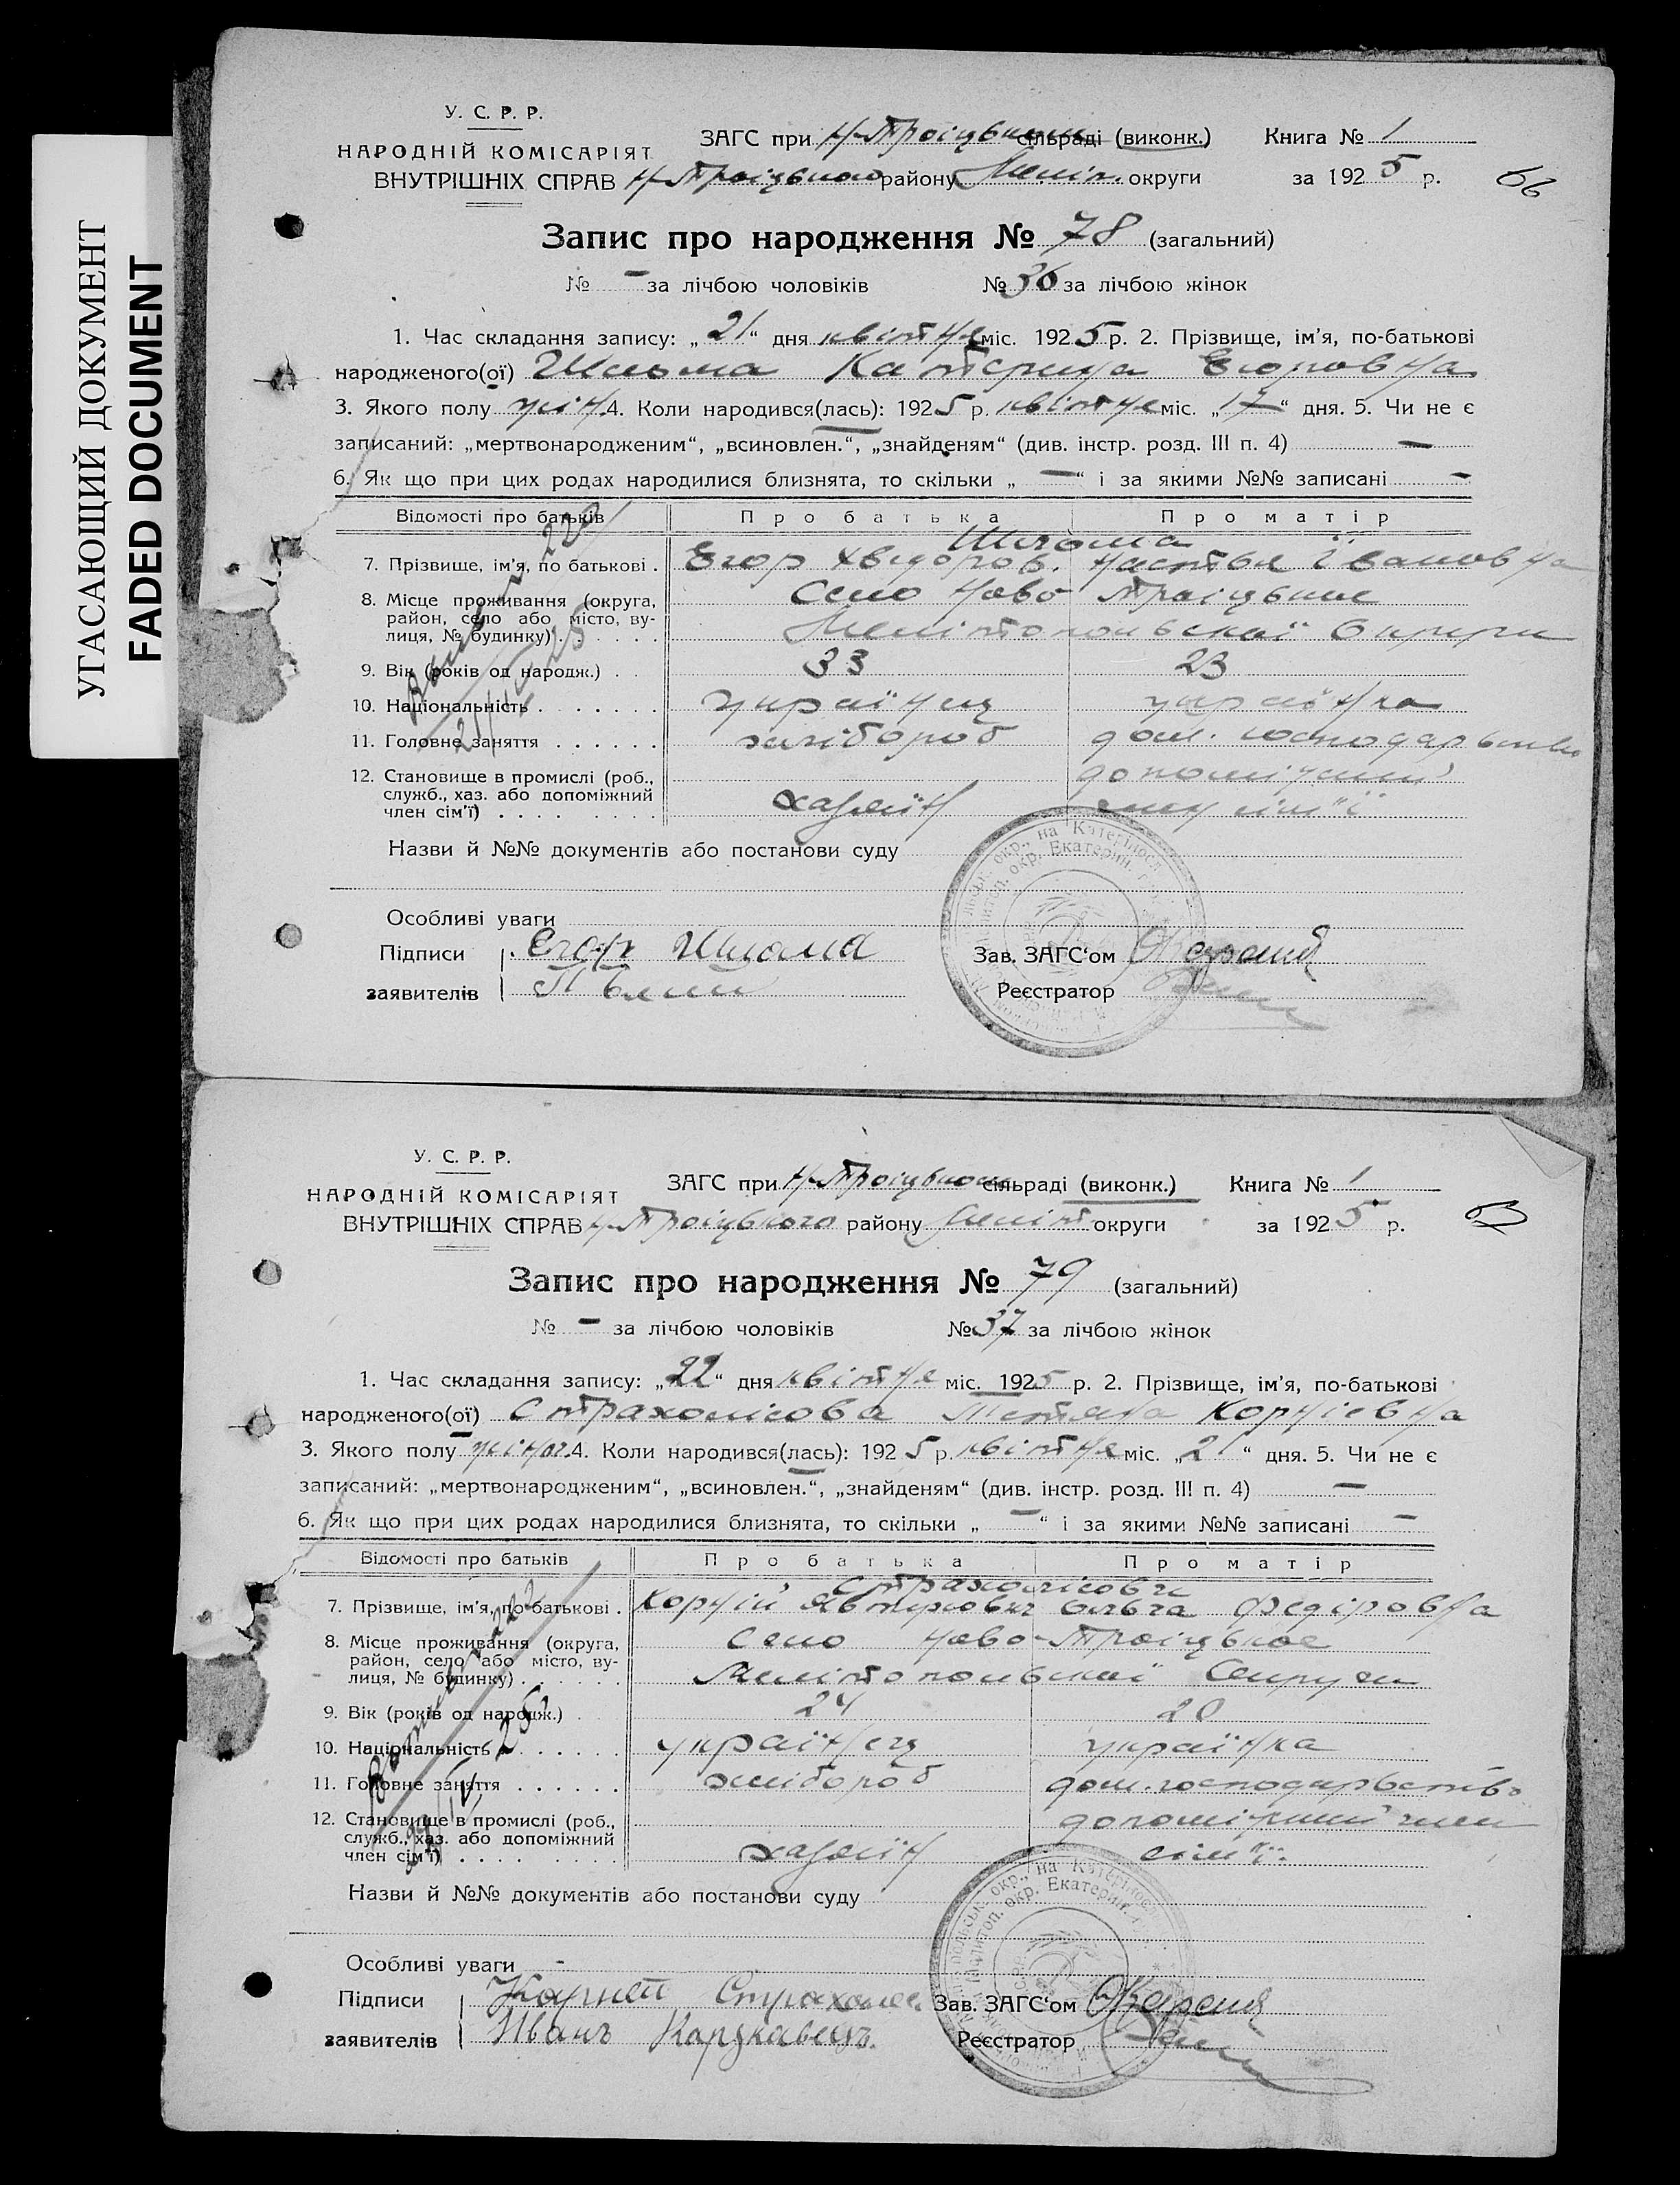 УГАСАЮЩИЙ ДОКУМЕНТ
FADED DOCUMENT
У. С. Р. Р.
НАРОДНІЙ КОМІСАРІЯТ
ВНУТРІШНІХ СПРАВ
ЗАГС при Н-Троіцьким сільраді (виконк.) Книга № 1
Н-Троіцького району Меліт. округи за 1925 р. 66
Запис про народження № 78 (загальний)
№ – за лічбою чоловіків № 36 за лічбою жінок
1. Час складання запису: „21“ дня квітня міс. 1925 р. 2. Прізвище, ім'я, по-батькові
народженого(ої) Шйома Катерина Егоровна
3. Якого полу жін. 4. Коли народився(лась): 1925 р. квітня міс. „17“ дня. 5. Чи не є
записаний: „мертвонародженим“, „всиновлен.“, „знайденям“ (див. інстр. розд. III п. 4) —
6. Як що при цих родах народилися близнята, то скільки „—“ і за якими №№ записані –
Відомості про батьків Про батька Про матір
7. Прізвище, ім'я, по батькові . Егор Хведоров. Настья Івановна
8. Місце проживання (округа, Село Ново Троіцькое
район, село або місто, ву-
лиця, № будинку) . Мелітопольскаї Округи
9. Вік (років од народж.) . . 33 23
10. Національність . . . . . . . українец українка
11. Головне заняття . . . . . . хлібороб дом. господарьство
12. Становище в промислі (роб.,
служб., хаз. або допоміжний допоміжний
член сім'ї) . . . . . . . . хазяїн член сім'ї
Назви й №№ документів або постанови суду
Особливі уваги
Підписи Егор
Зав. ЗАГС'ом
заявителів
Реєстратор
У. С. Р. Р.
НАРОДНІЙ КОМІСАРІЯТ
ВНУТРІШНІХ СПРАВ
ЗАГС при Н-Троіцьком сільраді (виконк.) Книга № 1
Н-Троіцького району Меліт округи за 1925 р.
Запис про народження № 79 (загальний)
№ – за лічбою чоловіків № 37 за лічбою жінок
1. Час складання запису: „22“ дня квітня міс. 1925 р. 2. Прізвище, ім'я, по-батькові
народженого(ої) Страхолісова Тетяна Корнієвна
3. Якого полу жіноч. 4. Коли народився(лась): 1925 р. квітня міс. „21“ дня. 5. Чи не є
записаний: „мертвонародженим“, „всиновлен.“, „знайденям“ (див. інстр. розд. III п. 4) —
6. Як що при цих родах народилися близнята, то скільки „—“ і за якими №№ записані –
Відомості про батьків Про батька Про матір
Страхолісови
7. Прізвище, ім'я, по-батькові . Корній Ольга Федіровна
8. Місце проживання (округа, Село Ново-Троіцькое
район, село або місто, ву-
лиця, № будинку) . . . . . . Мелітопольскаї Округи
9. Вік (років од народж.) . 24 20
10. Національність . . . . . . українец українка
11. Головне заняття . . . . . . хлібороб дом. господарьство
12. Становище в промислі (роб.,
служб., хаз. або допоміжний допоміжний член
член сім'ї) . . . . . . . . хазяїн сім'ї.
Назви й №№ документів або постанови суду
Особливі уваги -
Підписи Корней Страхолес
Зав. ЗАГС'ом
заявителів Иванъ Карукавець.
Реєстратор